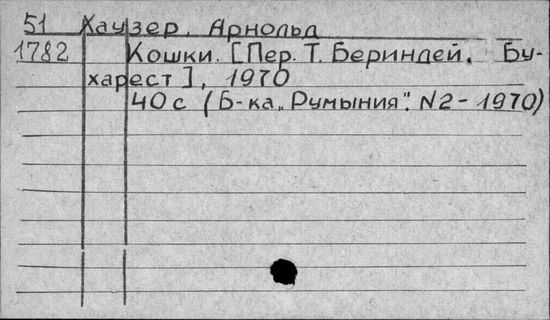 51 Хаузер, Арнольд
1782 Кошки. [Пер. Т. Бериндей. Бу-
харест], 1970
40 с (Б-ка „Румыния". N2-1970)